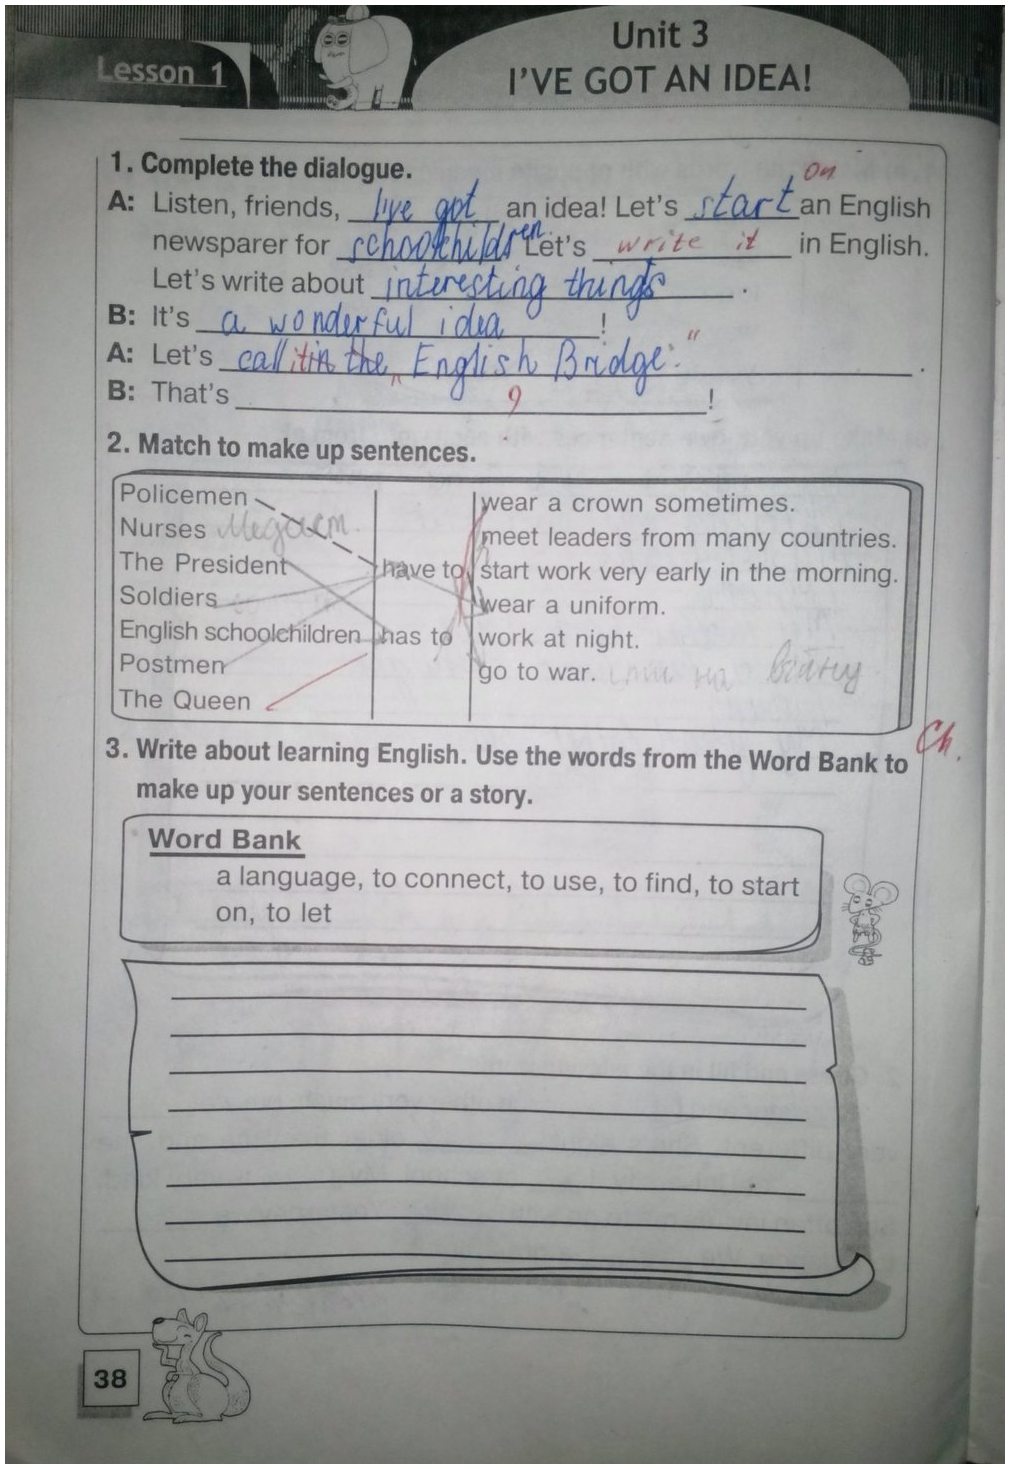 Lesson 1
Unit 3
I'VE GOT AN IDEA!
1. Complete the dialogue.
on
A: Listen, friends, I've got an idea! Let's start an English
newsparer for schoolchildren Let's write it in English.
Let's write about interesting things.
B: It's a wonderful idea!
A: Let's call it in the "English Bridge."
B: That's ?!
2. Match to make up sentences.
Policemen
Nurses
The President
Soldiers
English schoolchildren
Postmen
The Queen
have to
has to
wear a crown sometimes.
meet leaders from many countries.
start work very early in the morning.
wear a uniform.
work at night.
go to war. на війну
Ch.
3. Write about learning English. Use the words from the Word Bank to
make up your sentences or a story.
Word Bank
a language, to connect, to use, to find, to start
on, to let
38